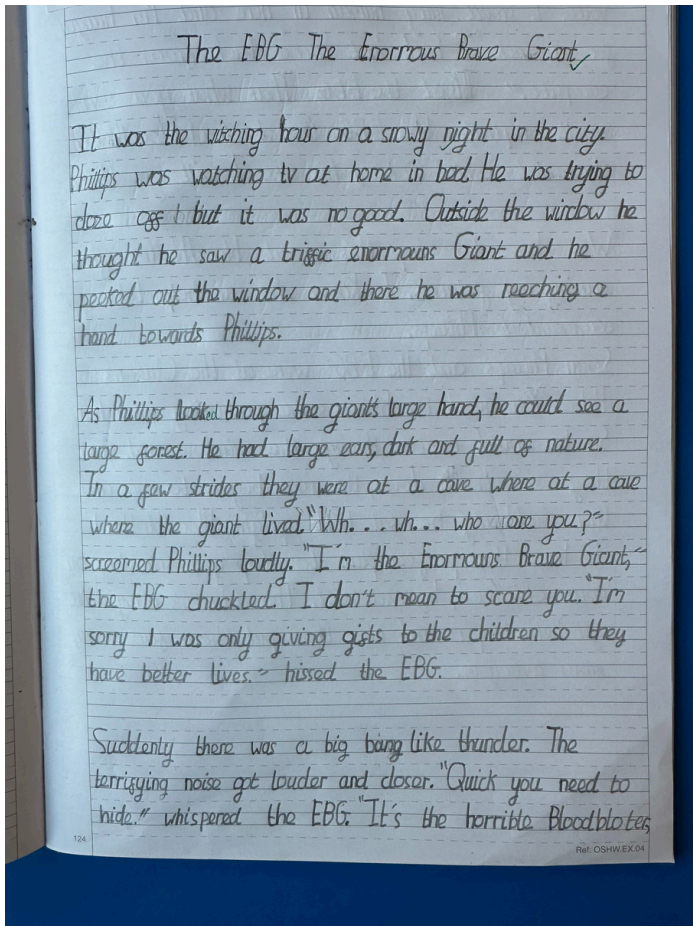 The EBG The Enormous Brave Giant
It was the witching hour on a snowy night in the city.
Phillips was watching tv at home in bed. He was trying to
doze off but it was no good. Outside the window he
thought he saw a triffic enormouns Giant and he
peeked out the window and there he was reeching a
hand towards Phillips.
As Phillips looked through the giant's large hand, he could see a
large forest. He had large ears, dark and full of nature.
In a few strides they were at a cave where at a cave
where the giant lived. "Wh... wh... who are you?"
screemed Phillips loudly. "I'm the Enormouns Brave Giant,"
the EBG chuckled. I don't mean to scare you. "I'm
sorry I was only giving gifts to the children so they
have better lives." hissed the EBG.
Suddenly there was a big bang like thunder. The
terrifying noise got louder and closer. "Quick you need to
hide." whispered the EBG. "It's the horrible Bloodbloter,
124
Ref: OSHW.EX.04